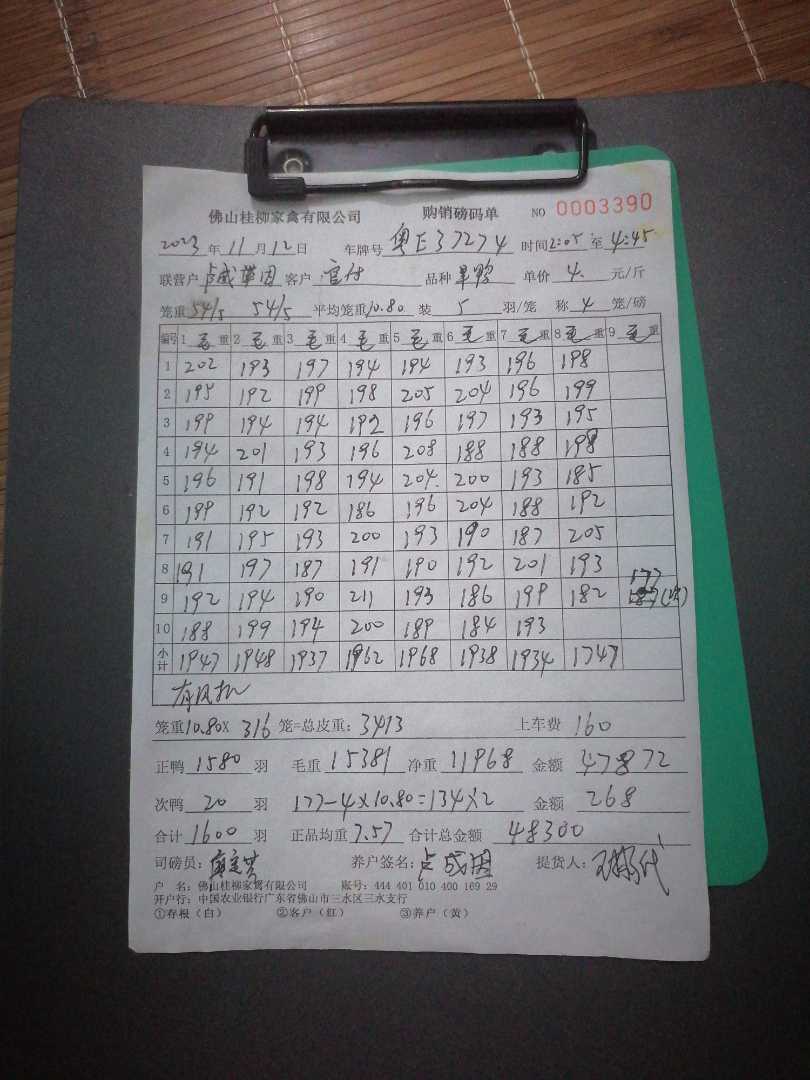 佛山桂柳家禽有限公司 购销磅码单 NO 0003390
2023 年 11 月 12 日 车牌号 粤E37274 时间 2:05 至 4:45
联营户 卢成 客户 官付 品种 旱鸭 单价 4. 元/斤
笼重 54/5 54/5 平均笼重 10.80 装 5 羽/笼 称 4 笼/磅
编号 1 毛 重 2 毛 重 3 毛 重 4 毛 重 5 毛 重 6 毛 重 7 毛 重 8 毛 重 9 毛 重
1 202 193 197 194 194 193 196 198
2 195 192 199 198 205 204 196 199
3 199 194 194 192 196 197 193 195
4 194 201 193 196 208 188 188 198
5 196 191 198 194 204. 200 193 185
6 199 192 192 186 196 204 188 192
7 191 195 193 200 193 190 187 205
8 191 197 187 191 190 192 201 193
9 192 194 190 211 193 186 199 182 177 (次)
10 188 199 194 200 189 184 193
小计 1947 1948 1937 1962 1968 1938 1934 1747
有风机
笼重 10.80 X 316 笼=总皮重: 3413 上车费 160
正鸭 1580 羽 毛重 15381 净重 11968 金额 47872
次鸭 20 羽 177-4×10.80=134×2 金额 268
合计 1600 羽 正品均重 7.57 合计总金额 48300
司磅员: 养户签名: 卢成 提货人:
户 名: 佛山桂柳家禽有限公司 账号: 444 401 010 400 169 29
开户行: 中国农业银行广东省佛山市三水区三水支行
①存根(白) ②客户(红) ③养户(黄)